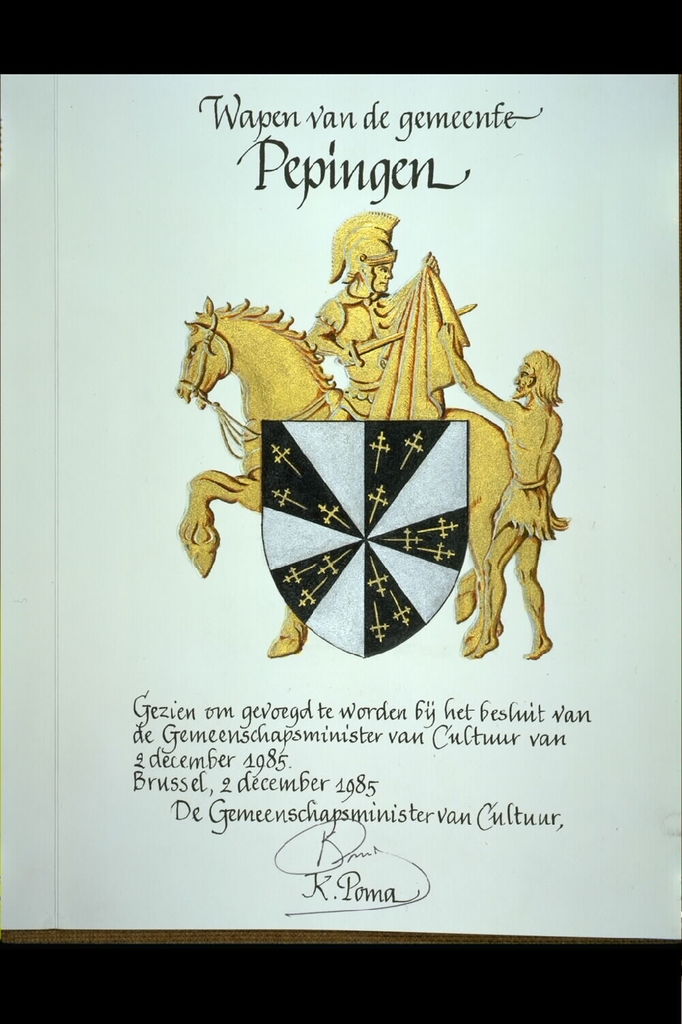 Wapen van de gemeente
Pepingen
Gezien om gevoegd te worden bij het besluit van
de Gemeenschapsminister van Cultuur van
2 december 1985.
Brussel, 2 december 1985
De Gemeenschapsminister van Cultuur,
K. Poma